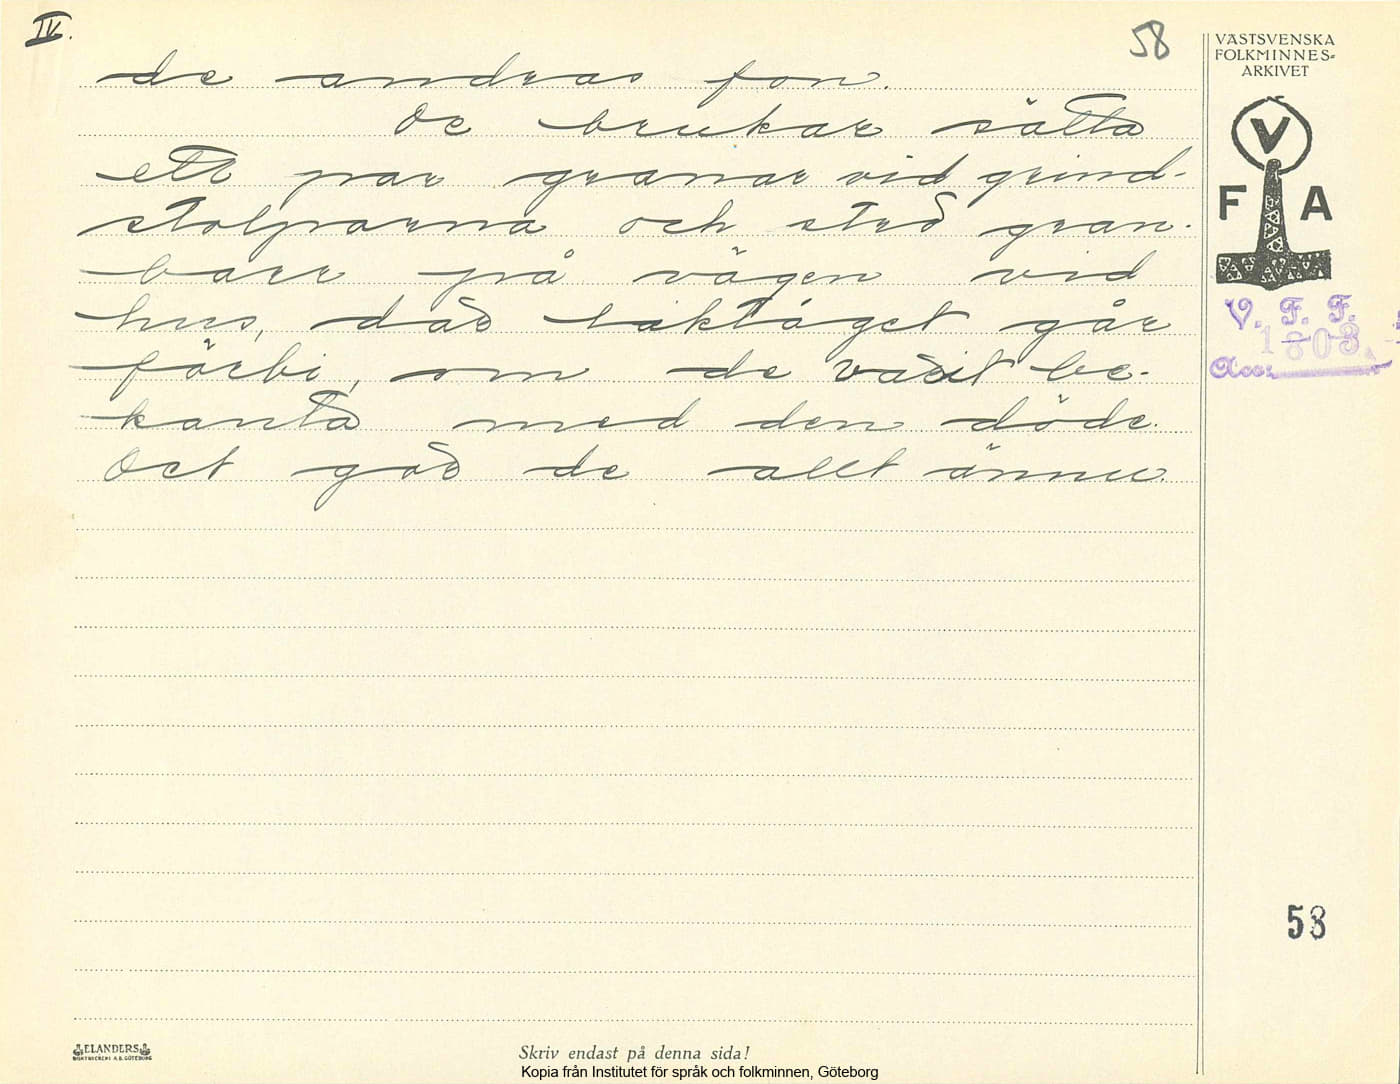 IV.
58
de andras fon.
De brukar sätta
ett par granar vid grind-
stolparna och strö gran-
barr på vägen vid
hus, där liktåget går
förbi, om de varit be-
kanta med den döde.
Det gör de allt ännu.
VÄSTSVENSKA
FOLKMINNES-
ARKIVET
V
F A
V. F. F.
1803
Acc:
58
ELANDERS
BOKTRYCKERI A.B. GÖTEBORG
Skriv endast på denna sida!
Kopia från Institutet för språk och folkminnen, Göteborg